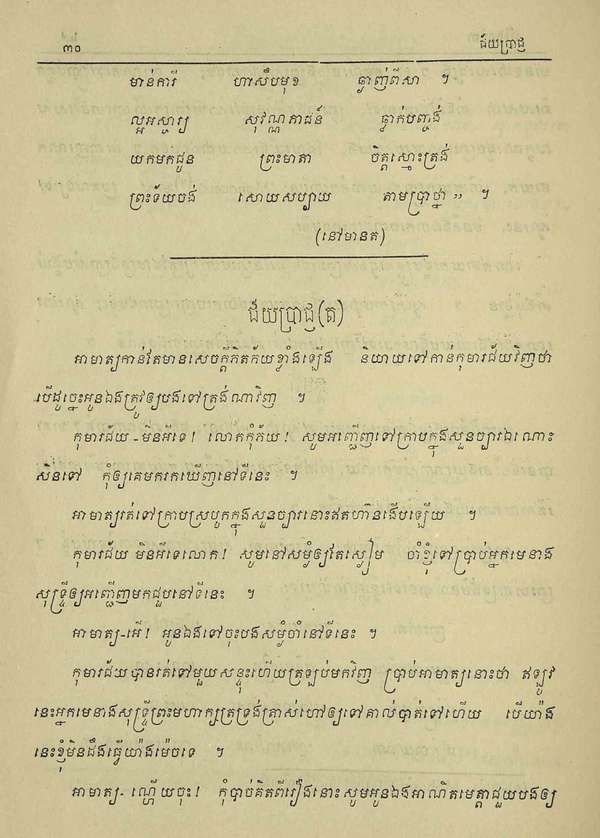 ៣០ ជ័យប្រាជ្ញ
មាន់ការី ហាសិបមុខ ធ្លាញ់ពីសា ។
ល្អអស្ចារ្យ សុវណ្ណភាជន៍ ធ្លាក់បញ្ចង់
យកមកជូន ព្រះមាតា ចិត្តស្មោះត្រង់
ព្រះទ័យចង់ សោយសប្បាយ តាមប្រាថ្នា » ។
(នៅមានត)
ជ័យប្រាជ្ញ(ត)
អាមាត្យកាន់តែមានសេចក្ដីភិតភ័យខ្លាំងឡើង និយាយទៅកាន់កុមារជ័យវិញថា
បើដូច្នេះអូនឯងត្រូវឲ្យបងទៅត្រង់ណាវិញ ។
កុមារជ័យ -មិនអីទេ! លោកកុំភ័យ! សូមអញ្ជើញទៅក្រាបក្នុងសួនច្បារឯណោះ
សិនទៅ កុំឲ្យគេមករកឃើញនៅទីនេះ ។
អាមាត្យរត់ទៅក្រាបស្របូកក្នុងសួនច្បារនោះឥតហ៊ានងើបឡើយ ។
កុមារជ័យ មិនអីទេលោក! សូមនៅសម្ងំឲ្យតែស្ងៀម ចាំខ្ញុំទៅប្រាប់អ្នកមេនាង
សុទ្រ្ទីឲ្យអញ្ជើញមកជួបនៅទីនេះ ។
អាមាត្យ-អើ! អូនឯងទៅចុះបងសម្ងំចាំនៅទីនេះ ។
កុមារជ័យបានរត់ទៅមួយសន្ទុះហើយត្រឡប់មកវិញ ប្រាប់អាមាត្យនោះថា ឥឡូវ
នេះអ្នកមេនាងសុទ្រ្ទីព្រះមហាក្សត្រទ្រង់ត្រាស់ហៅឲ្យទៅគាល់បាត់ទៅហើយ បើយ៉ាង
នេះខ្ញុំមិនដឹងធ្វើយ៉ាងម៉េចទេ ។
អាមាត្យ- ណ្ហើយចុះ! កុំបាច់គិតពីរឿងនោះសូមអូនឯងអាណិតមេត្តាជួយបងឲ្យ